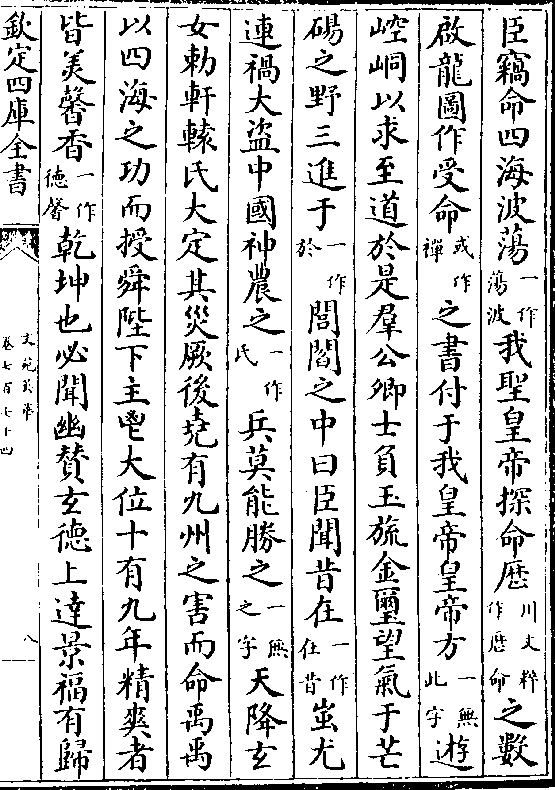 臣竊命四海波蕩一作蕩波我聖皇帝探命歷川文粹作歷命之數
啟龍圖作受命或作禪之書付于我皇帝皇帝方一無此字遊
崆峒以求至道於是羣公卿士負玉旒金璽望氣于芒
碭之野三進于一作於閭閻之中曰臣聞昔在一作在昔蚩尤
連禍大盜中國神農之一作氏兵莫能勝之一無之字天降玄
女勅軒轅氏大定其災厥後堯有九州之害而命禹禹
以四海之功而授舜陛下主鬯大位十有九年精爽者
皆美馨香一作德馨乾坤也必聞幽贊玄德上達景福有歸
欽定四庫全書
文苑英華
卷七百七十四
八